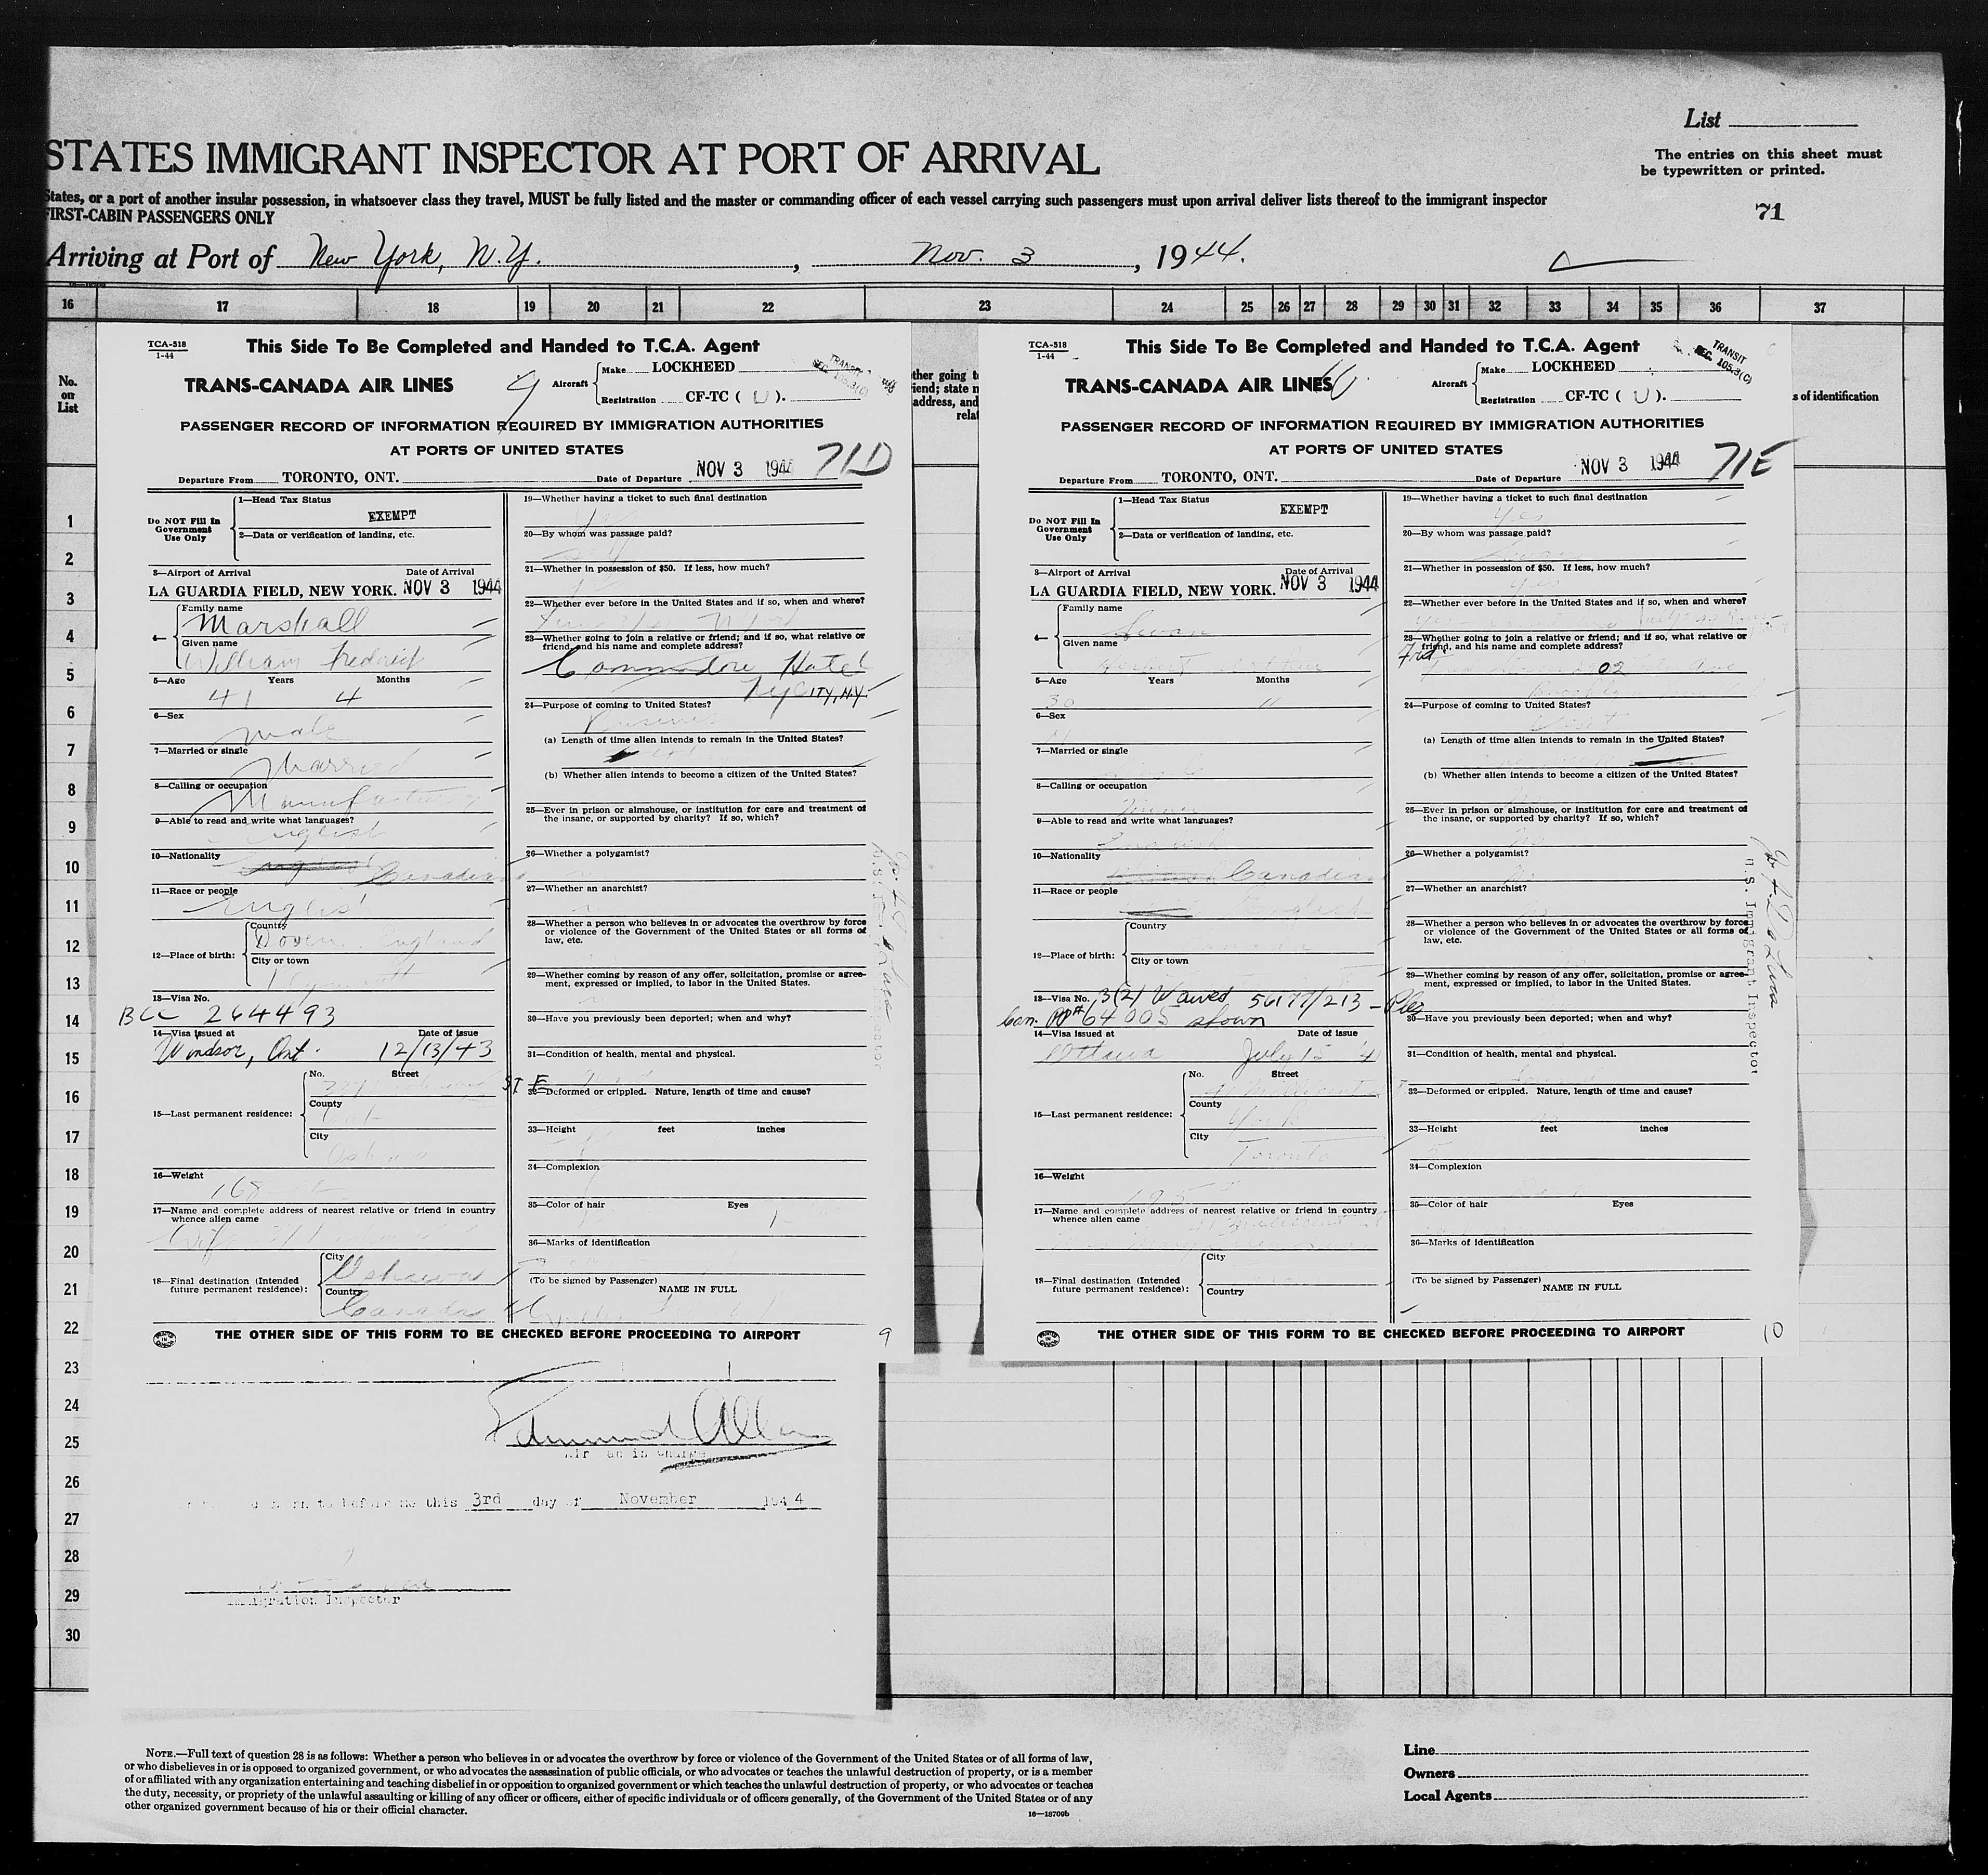 List
STATES IMMIGRANT INSPECTOR AT PORT OF ARRIVAL
The entries on this sheet must
be typewritten or printed.
States, or a port of another insular possession, in whatsoever class they travel, MUST be fully listed and the master or commanding officer of each vessel carrying such passengers must upon arrival deliver lists thereof to the immigrant inspector
FIRST-CABIN PASSENGERS ONLY
71
Arriving at Port of New York, N.Y. , Nov. 3 , 1944.
16 17 18 19 20 21 22 23 24 25 26 27 28 29 30 31 32 33 34 35 36 37
No.
on
List
1
2
3
4
5
6
7
8
9
10
11
12
13
14
15
16
17
18
19
20
21
22
23
24
25
26
27
28
29
30
TCA-518
1-44
This Side To Be Completed and Handed to T.C.A. Agent
TRANS-CANADA AIR LINES
9
Aircraft
Make LOCKHEED
Registration CF-TC ( U ).
TRANSIT
SEC. 105.3(C)
PASSENGER RECORD OF INFORMATION REQUIRED BY IMMIGRATION AUTHORITIES
AT PORTS OF UNITED STATES
71D
Departure From TORONTO, ONT. Date of Departure NOV 3 1944
Do NOT Fill In
Government
Use Only
1—Head Tax Status
EXEMPT
2—Data or verification of landing, etc.
3—Airport of Arrival Date of Arrival
LA GUARDIA FIELD, NEW YORK. NOV 3 1944
4— Family name
Marshall
Given name
William Frederick
5—Age Years Months
41 4
6—Sex
male
7—Married or single
Married
8—Calling or occupation
9—Able to read and write what languages?
English
10—Nationality
Canadian
11—Race or people
English
12—Place of birth:
Country
Devon England
City or town
13—Visa No.
BCC 264493
14—Visa issued at Date of issue
Windsor, Ont. 12/13/43
15—Last permanent residence:
No. Street
ST E
County
City
16—Weight
168
17—Name and complete address of nearest relative or friend in country
whence alien came
Wife
18—Final destination (Intended
future permanent residence):
City
Oshawa
Country
Canada
19—Whether having a ticket to such final destination
20—By whom was passage paid?
21—Whether in possession of $50. If less, how much?
22—Whether ever before in the United States and if so, when and where?
23—Whether going to join a relative or friend; and if so, what relative or
friend, and his name and complete address?
Commodore Hotel
NY CITY, N.Y.
24—Purpose of coming to United States?
Business
(a) Length of time alien intends to remain in the United States?
(b) Whether alien intends to become a citizen of the United States?
25—Ever in prison or almshouse, or institution for care and treatment of
the insane, or supported by charity? If so, which?
26—Whether a polygamist?
27—Whether an anarchist?
28—Whether a person who believes in or advocates the overthrow by force
or violence of the Government of the United States or all forms of
law, etc.
29—Whether coming by reason of any offer, solicitation, promise or agree-
ment, expressed or implied, to labor in the United States.
30—Have you previously been deported; when and why?
31—Condition of health, mental and physical.
32—Deformed or crippled. Nature, length of time and cause?
33—Height feet inches
34—Complexion
35—Color of hair Eyes
36—Marks of identification
(To be signed by Passenger) NAME IN FULL
THE OTHER SIDE OF THIS FORM TO BE CHECKED BEFORE PROCEEDING TO AIRPORT
9
ther going t
iend; state n
address, and
relat
TCA-518
1-44
This Side To Be Completed and Handed to T.C.A. Agent
TRANS-CANADA AIR LINES
Aircraft
Make LOCKHEED
Registration CF-TC ( U ).
TRANSIT
SEC. 105.3(C)
PASSENGER RECORD OF INFORMATION REQUIRED BY IMMIGRATION AUTHORITIES
AT PORTS OF UNITED STATES
71E
Departure From TORONTO, ONT. Date of Departure NOV 3 1944
Do NOT Fill In
Government
Use Only
1—Head Tax Status
EXEMPT
2—Data or verification of landing, etc.
3—Airport of Arrival Date of Arrival
LA GUARDIA FIELD, NEW YORK. NOV 3 1944
4— Family name
Swan
Given name
5—Age Years Months
30 11
6—Sex
7—Married or single
8—Calling or occupation
9—Able to read and write what languages?
English
10—Nationality
Canadian
11—Race or people
English
12—Place of birth:
Country
City or town
13—Visa No. 3(2) Waived 56177/213
Can. PP# 64005 shown
14—Visa issued at Date of issue
Ottawa July 15
15—Last permanent residence:
No. Street
County
York
City
Toronto
16—Weight
195
17—Name and complete address of nearest relative or friend in country
whence alien came
18—Final destination (Intended
future permanent residence):
City
Country
19—Whether having a ticket to such final destination
Yes
20—By whom was passage paid?
21—Whether in possession of $50. If less, how much?
Yes
22—Whether ever before in the United States and if so, when and where?
23—Whether going to join a relative or friend; and if so, what relative or
friend, and his name and complete address?
Frd. 02
Brooklyn
24—Purpose of coming to United States?
Visit
(a) Length of time alien intends to remain in the United States?
(b) Whether alien intends to become a citizen of the United States?
25—Ever in prison or almshouse, or institution for care and treatment of
the insane, or supported by charity? If so, which?
26—Whether a polygamist?
27—Whether an anarchist?
28—Whether a person who believes in or advocates the overthrow by force
or violence of the Government of the United States or all forms of
law, etc.
29—Whether coming by reason of any offer, solicitation, promise or agree-
ment, expressed or implied, to labor in the United States.
30—Have you previously been deported; when and why?
31—Condition of health, mental and physical.
32—Deformed or crippled. Nature, length of time and cause?
33—Height feet inches
34—Complexion
35—Color of hair Eyes
36—Marks of identification
(To be signed by Passenger) NAME IN FULL
THE OTHER SIDE OF THIS FORM TO BE CHECKED BEFORE PROCEEDING TO AIRPORT
10
U.S. Immigrant Inspector
s of identification
Edmund Allen
in Charge
to before me this 3rd day of November 1944
Immigration Inspector
NOTE.—Full text of question 28 is as follows: Whether a person who believes in or advocates the overthrow by force or violence of the Government of the United States or of all forms of law,
or who disbelieves in or is opposed to organized government, or who advocates the assassination of public officials, or who advocates or teaches the unlawful destruction of property, or is a member
of or affiliated with any organization entertaining and teaching disbelief in or opposition to organized government or which teaches the unlawful destruction of property, or who advocates or teaches
the duty, necessity, or propriety of the unlawful assaulting or killing of any officer or officers, either of specific individuals or of officers generally, of the Government of the United States or of any
other organized government because of his or their official character.
16—18709b
Line
Owners
Local Agents